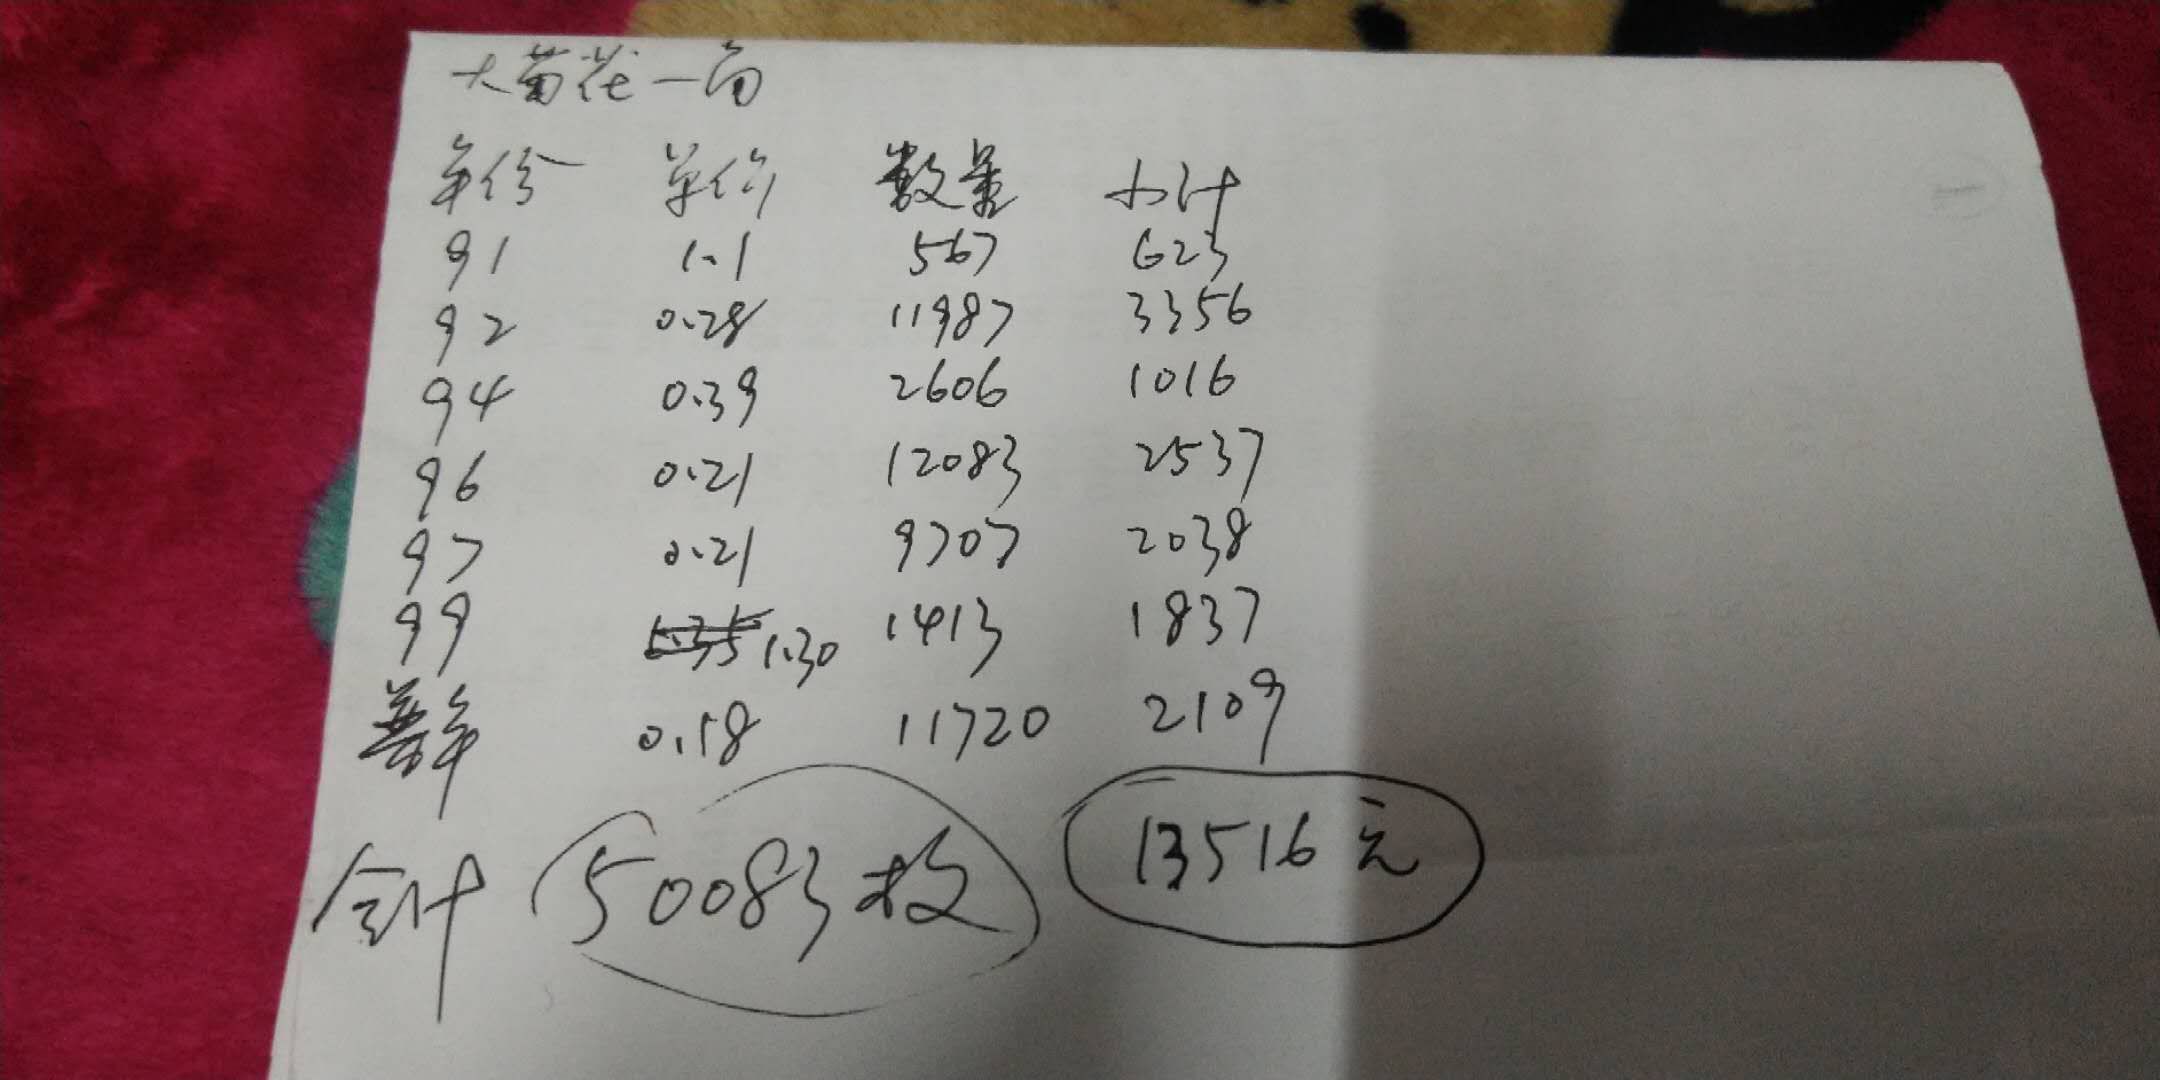 大菊花一角
年份 单价 数量 小计
91 1.1 567 623
92 0.28 11987 3356
94 0.39 2606 1016
96 0.21 12083 2537
97 0.21 9707 2038
99 1.30 1413 1837
普年 0.18 11720 2109
合计 50083枚 13516元